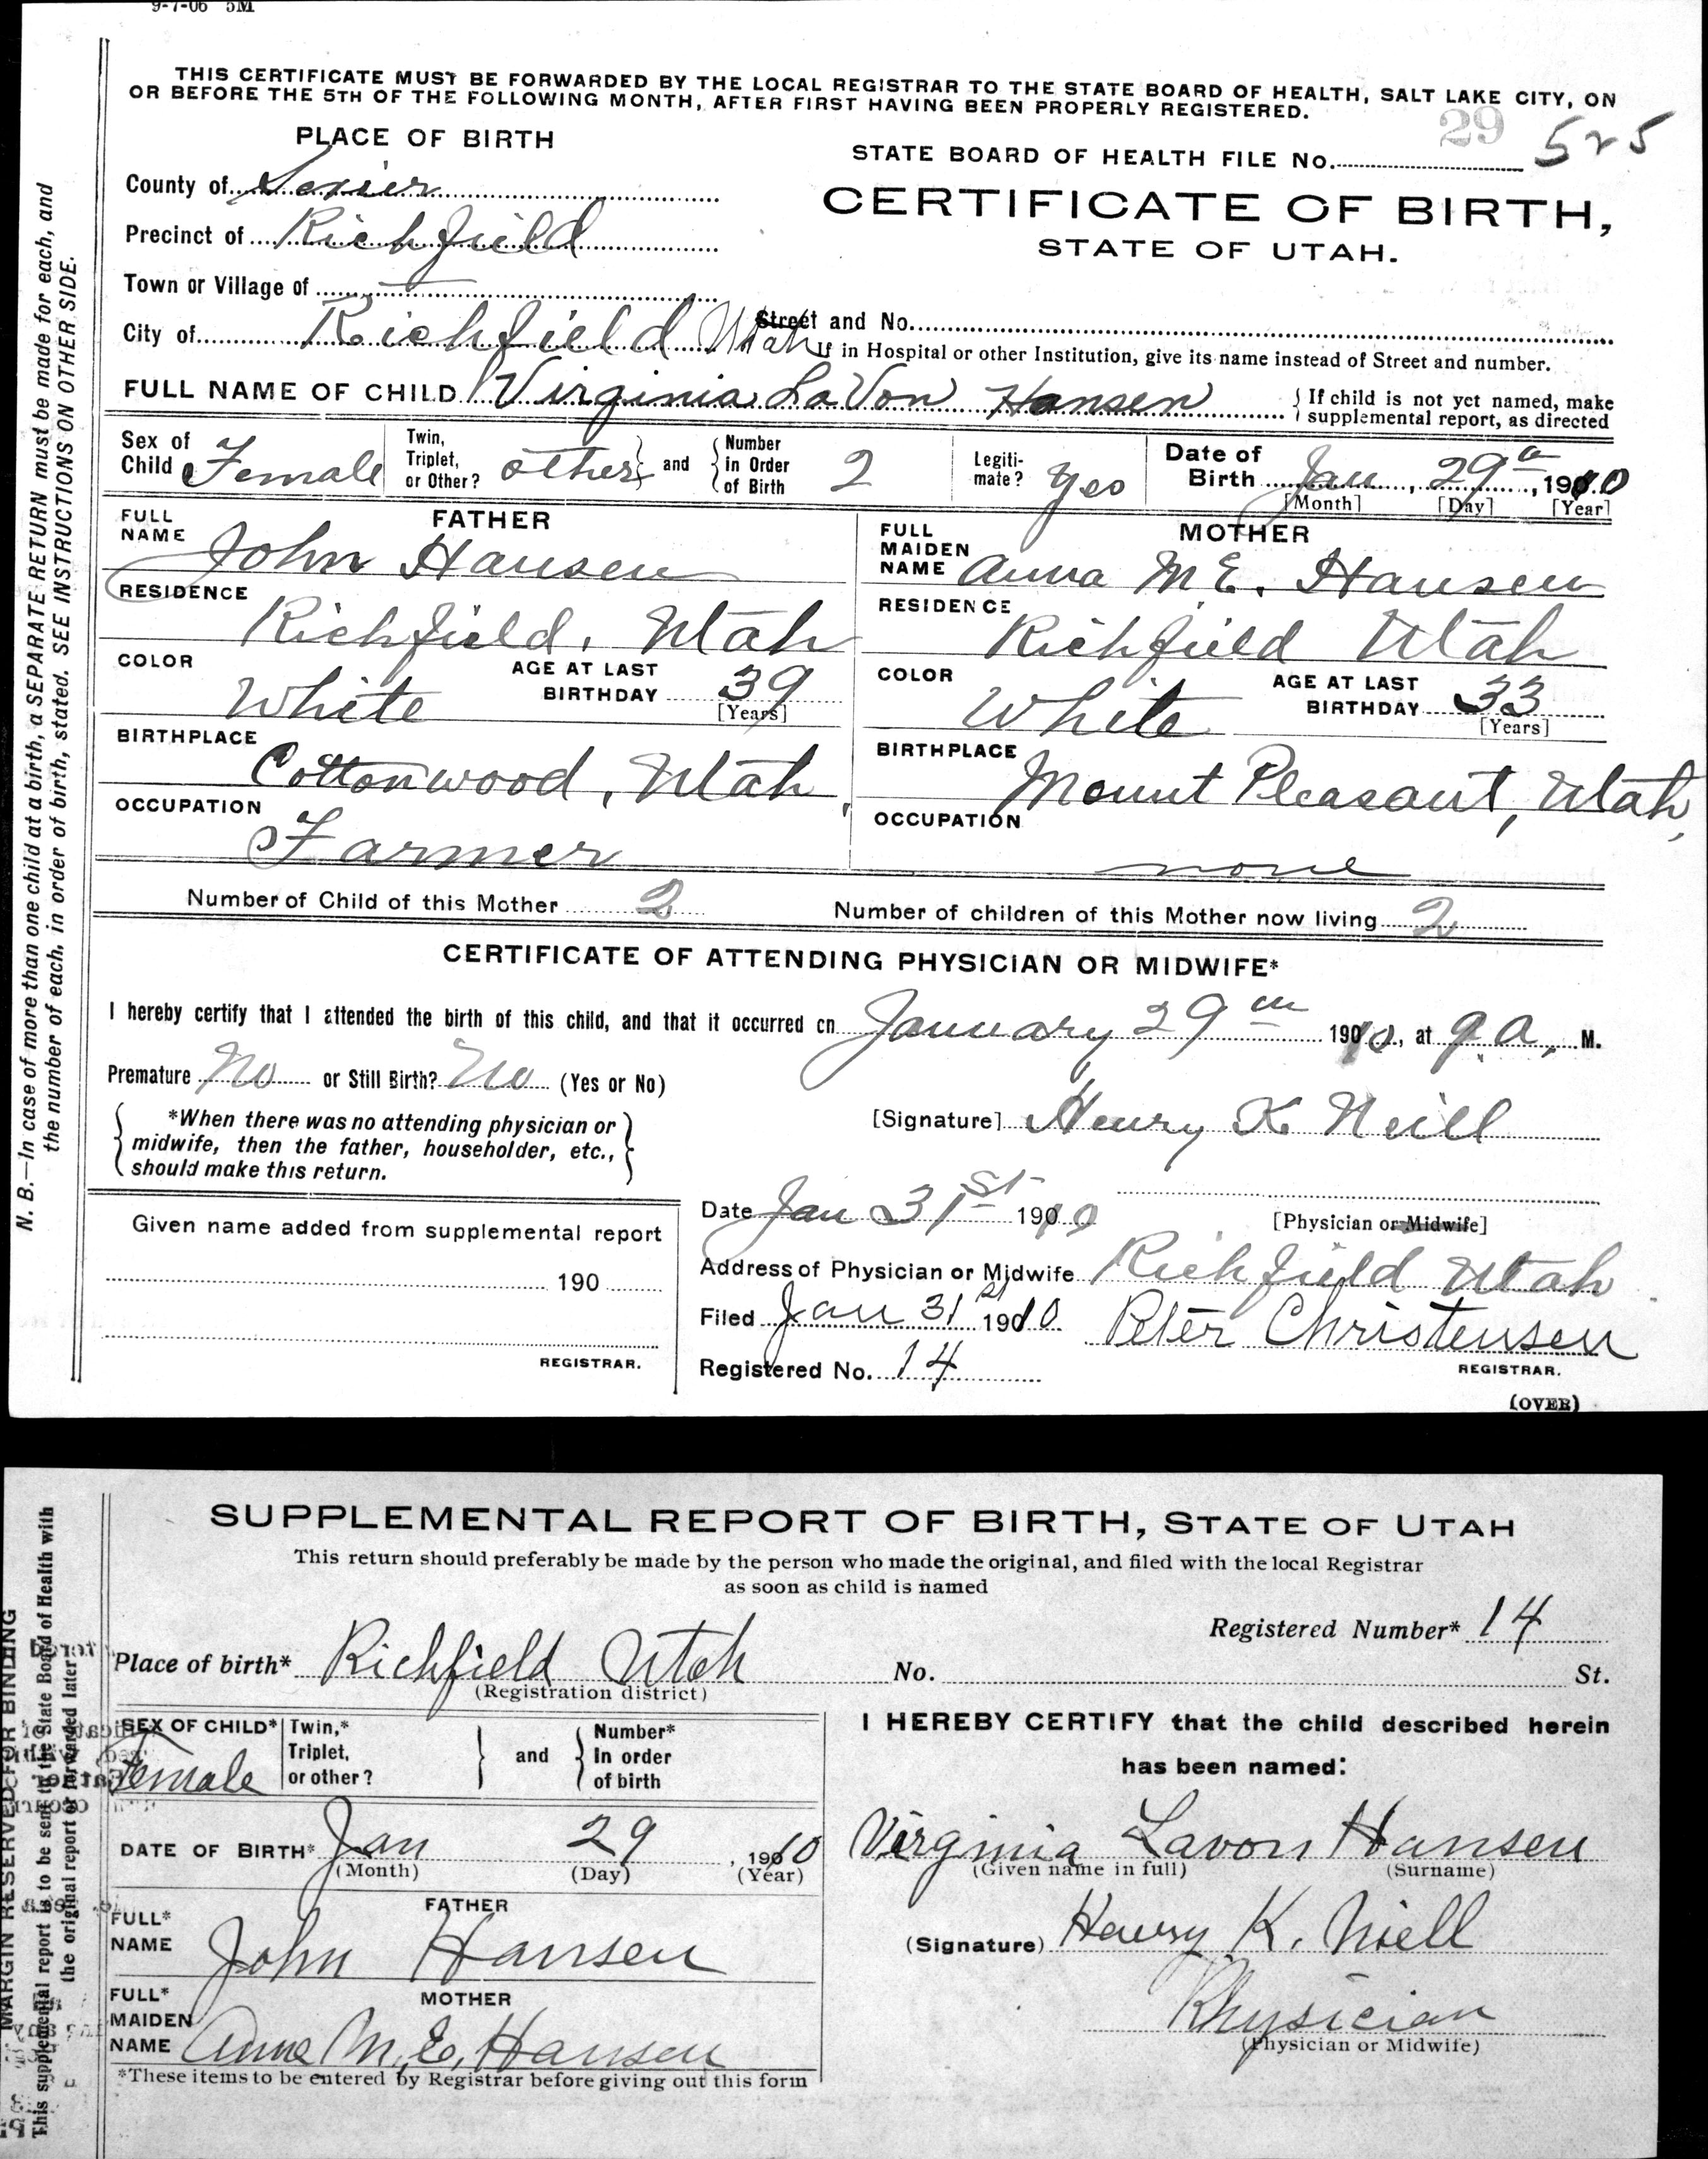 9-7-06 5M
THIS CERTIFICATE MUST BE FORWARDED BY THE LOCAL REGISTRAR TO THE STATE BOARD OF HEALTH, SALT LAKE CITY, ON
OR BEFORE THE 5TH OF THE FOLLOWING MONTH, AFTER FIRST HAVING BEEN PROPERLY REGISTERED.
N. B.—In case of more than one child at a birth, a SEPARATE RETURN must be made for each, and
the number of each, in order of birth, stated. SEE INSTRUCTIONS ON OTHER SIDE.
PLACE OF BIRTH
29 525
STATE BOARD OF HEALTH FILE No.
County of Sevier
CERTIFICATE OF BIRTH,
Precinct of Richfield
STATE OF UTAH.
Town or Village of —
City of Richfield Utah Street and No.
If in Hospital or other Institution, give its name instead of Street and number.
FULL NAME OF CHILD Virginia LaVon Hansen { If child is not yet named, make
supplemental report, as directed
Sex of Child Female Twin, Triplet, or Other? other } and { Number in Order of Birth 2 Legiti-mate? Yes Date of Birth Jan, 29th, 1910
[Month] [Day] [Year]
FULL NAME FATHER John Hansen
FULL MAIDEN NAME MOTHER Anna M E. Hansen
RESIDENCE Richfield, Utah
RESIDENCE Richfield Utah
COLOR White AGE AT LAST BIRTHDAY 39 [Years]
COLOR White AGE AT LAST BIRTHDAY 33 [Years]
BIRTHPLACE Cottonwood, Utah,
BIRTHPLACE Mount Pleasant, Utah,
OCCUPATION Farmer
OCCUPATION none
Number of Child of this Mother 2 Number of children of this Mother now living 2
CERTIFICATE OF ATTENDING PHYSICIAN OR MIDWIFE*
I hereby certify that I attended the birth of this child, and that it occurred on January 29th 1910, at 9 a, M.
Premature No or Still Birth? No (Yes or No)
{ *When there was no attending physician or
midwife, then the father, householder, etc.,
should make this return. }
[Signature] Henry K Neill
Date Jan 31st 1910
[Physician or Midwife]
Given name added from supplemental report
190
REGISTRAR.
Address of Physician or Midwife Richfield Utah
Filed Jan 31st 1910 Peter Christensen
REGISTRAR.
Registered No. 14
(OVER)
SUPPLEMENTAL REPORT OF BIRTH, STATE OF UTAH
This return should preferably be made by the person who made the original, and filed with the local Registrar
as soon as child is named
MARGIN RESERVED FOR BINDING
This supplemental report is to be sent to the State Board of Health with
the original report or forwarded later
Registered Number* 14
Place of birth* Richfield Utah No. St.
(Registration district)
SEX OF CHILD* Female Twin,* Triplet, or other? } and { Number* In order of birth
I HEREBY CERTIFY that the child described herein
has been named:
DATE OF BIRTH* Jan 29, 1910
(Month) (Day) (Year)
Virginia Lavon Hansen
(Given name in full) (Surname)
FATHER
FULL* NAME John Hansen
(Signature) Henry K. Niell
MOTHER
FULL* MAIDEN NAME Anna M. E. Hansen
Physician
(Physician or Midwife)
*These items to be entered by Registrar before giving out this form